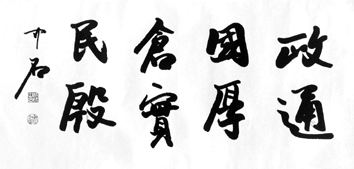 政通
國厚
倉實
民殷